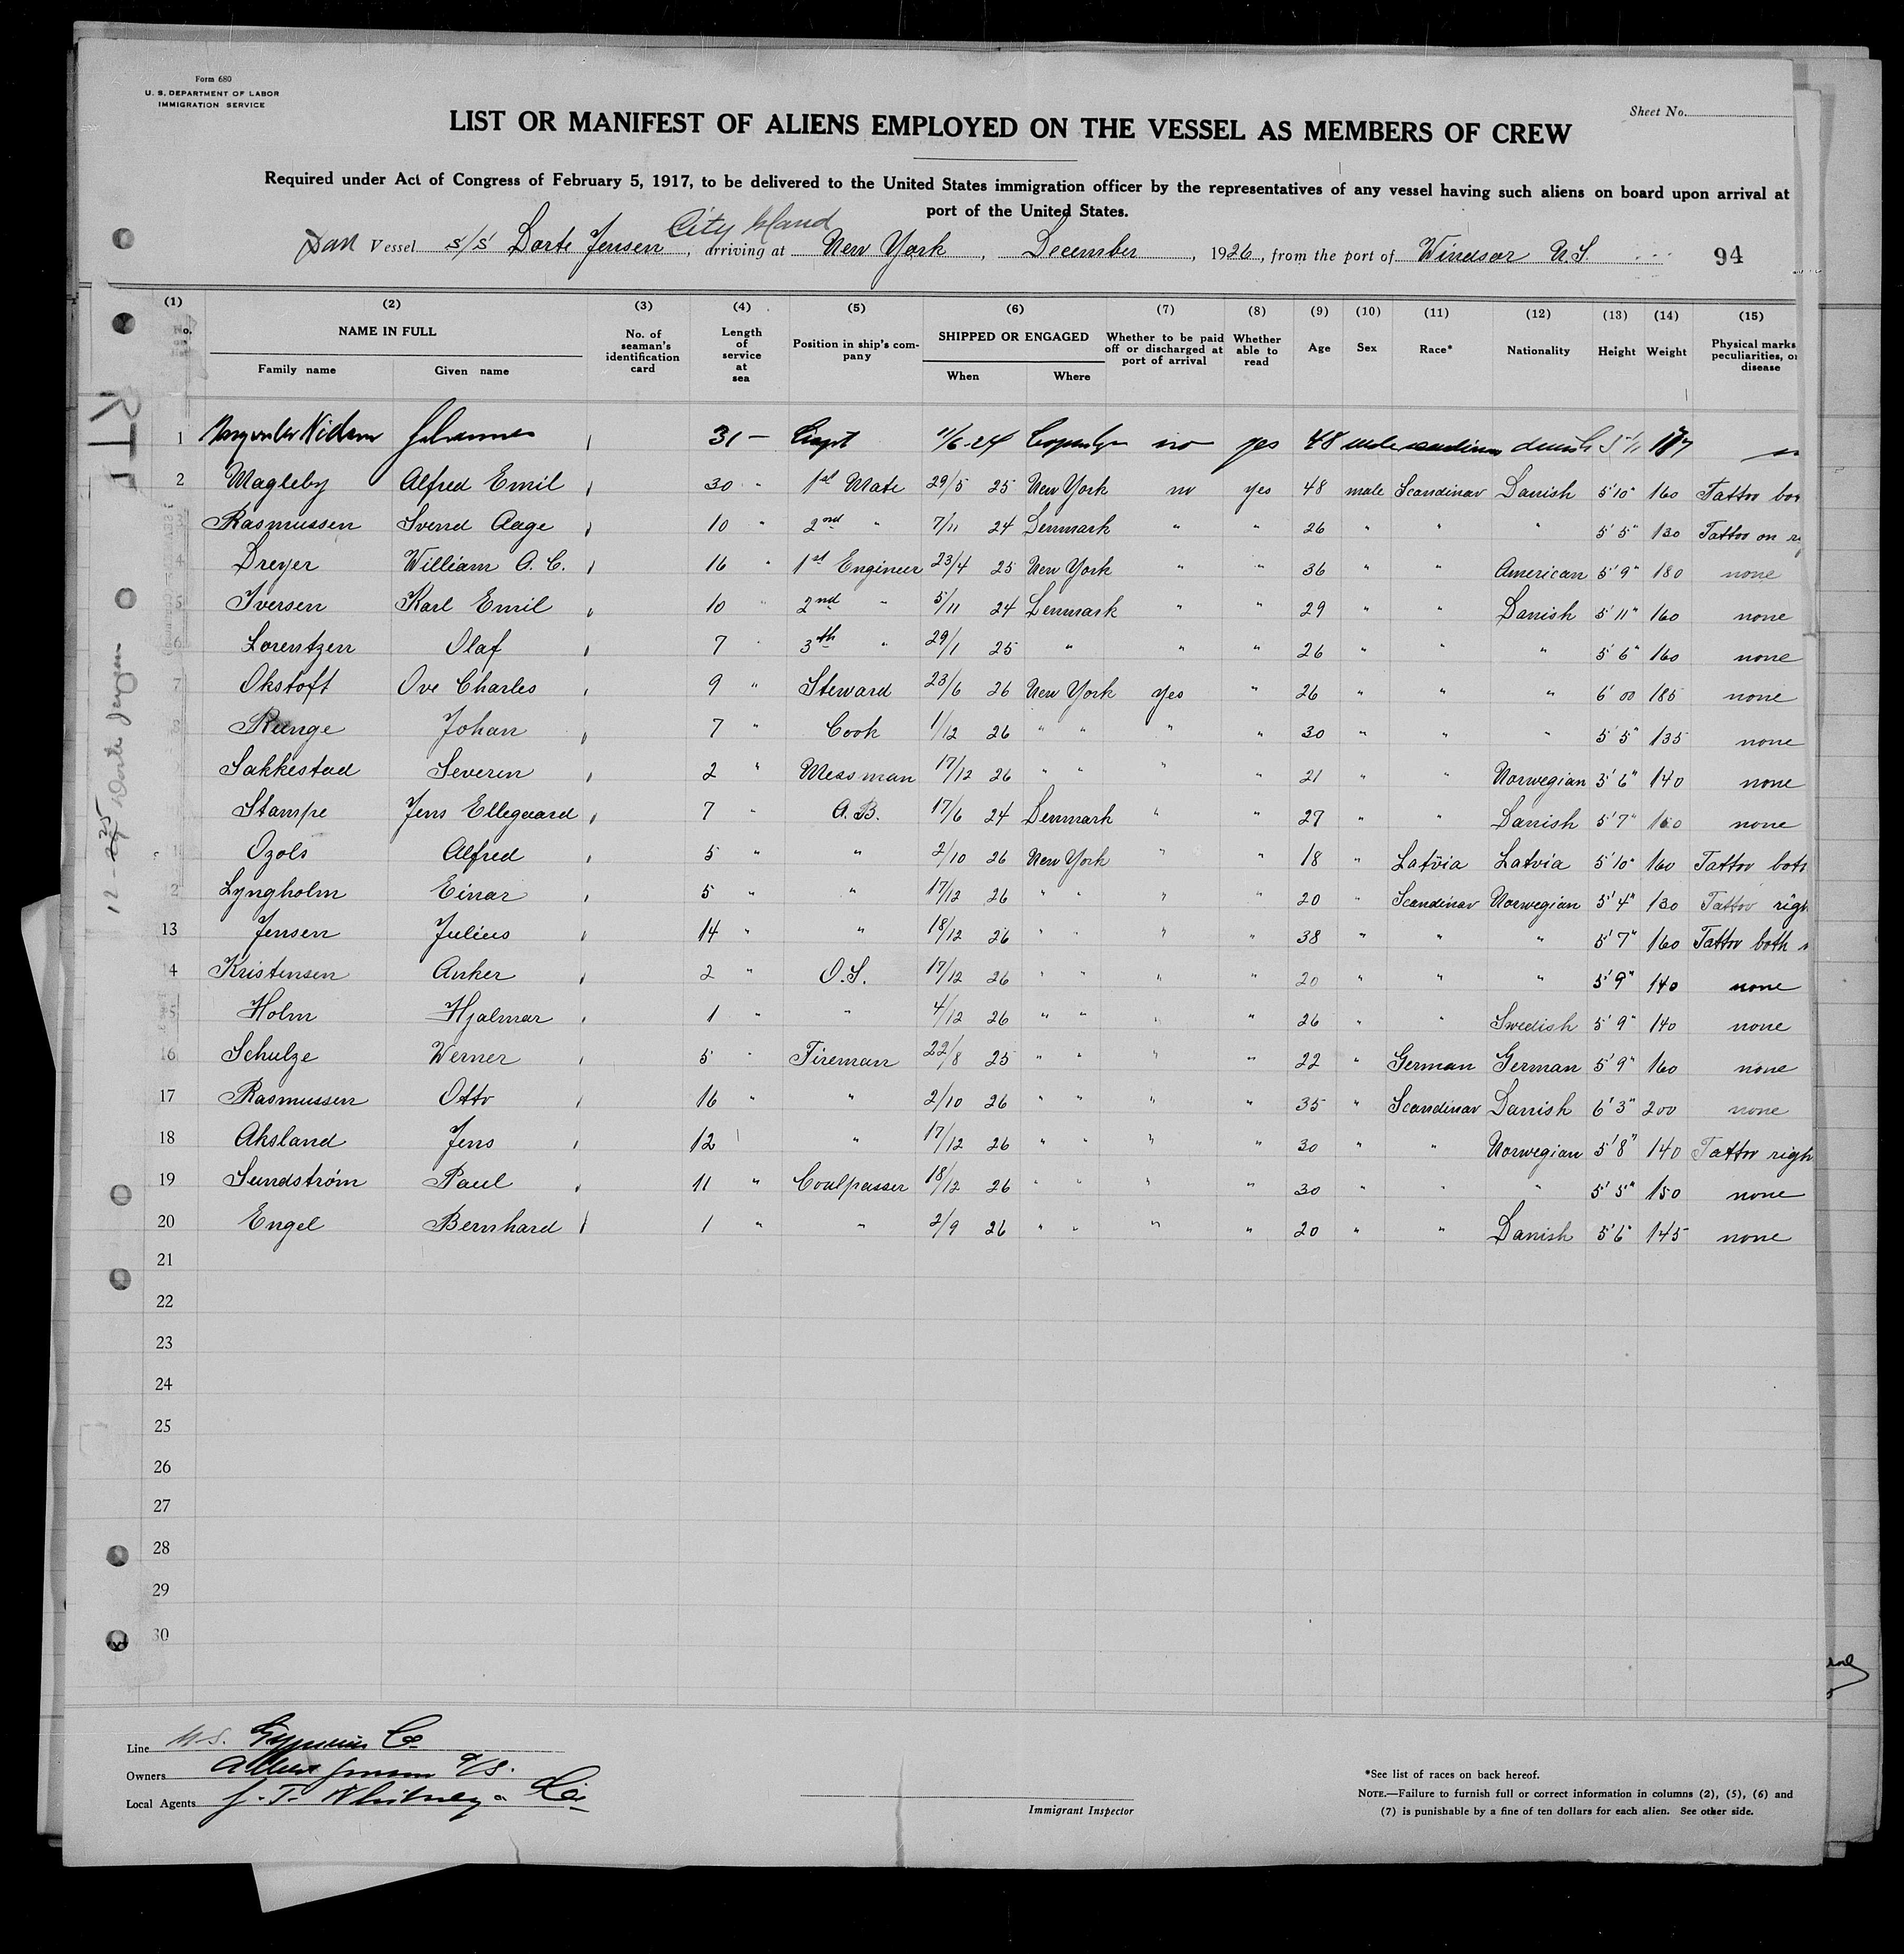 Form 680
U. S. DEPARTMENT OF LABOR
IMMIGRATION SERVICE
Sheet No.
LIST OR MANIFEST OF ALIENS EMPLOYED ON THE VESSEL AS MEMBERS OF CREW
Required under Act of Congress of February 5, 1917, to be delivered to the United States immigration officer by the representatives of any vessel having such aliens on board upon arrival at
port of the United States.
City Island
Dan Vessel s/s Dorte Jensen, arriving at New York, December, 1926, from the port of Windsor N.S. 94
(1) (2) (3) (4) (5) (6) (7) (8) (9) (10) (11) (12) (13) (14) (15)
No. on list NAME IN FULL Family name Given name No. of seaman's identification card Length of service at sea Position in ship's company SHIPPED OR ENGAGED When Where Whether to be paid off or discharged at port of arrival Whether able to read Age Sex Race* Nationality Height Weight Physical marks, peculiarities, or disease
1 Nielsen Johannes 31 – Capt 11/6 24 no yes 48 male danish 5'11
2 Magleby Alfred Emil 30 " 1st Mate 29/5 25 New York no yes 48 male Scandinav Danish 5'10" 160 Tattoo
3 Rasmussen Svend Aage 10 " 2nd " 7/11 24 Denmark " " 26 " " " 5'5" 130 Tattoo on
4 Dreyer William A. C. 16 " 1st Engineer 23/4 25 New York " " 36 " " American 5'9" 180 none
5 Iversen Karl Emil 10 " 2nd " 5/11 24 Denmark " " 29 " " Danish 5'11" 160 none
6 Lorentzen Olaf 7 " 3th " 29/1 25 " " " 26 " " " 5'6" 160 none
7 Okstoft Ove Charles 9 " Steward 23/6 26 New York Yes " 26 " " " 6'00 185 none
8 Runge Johan 7 " Cook 1/12 26 " " " " 30 " " " 5'5" 135 none
Sakkestad Severin 2 " Messman 17/12 26 " " " " 21 " " Norwegian 5'6" 140 none
Stampe Jens Ellegaard 7 " A.B. 17/6 24 Denmark " " 27 " " Danish 5'7" 160 none
Ozols Alfred 5 " " 2/10 26 New York " " 18 " Latvia Latvia 5'10" 160 Tattoo both
12 Lyngholm Einar 5 " " 17/12 26 " " " " 20 " Scandinav Norwegian 5'4" 130 Tattoo righ
13 Jensen Julius 14 " " 18/12 26 " " " " 38 " " " 5'7" 160 Tattoo both
14 Kristensen Anker 2 " O.S. 17/12 26 " " " " 20 " " " 5'9" 140 none
15 Holm Hjalmar 1 " " 4/12 26 " " " " 26 " " Swedish 5'9" 140 none
16 Schulze Werner 5 " Fireman 22/8 25 " " " " 22 " German German 5'9" 160 none
17 Rasmussen Otto 16 " " 2/10 26 " " " " 35 " Scandinav Danish 6'3" 200 none
18 Aksland Jens 12 " 17/12 26 " " " " 30 " " Norwegian 5'8" 140 Tattoo righ
19 Sundström Paul 11 " Coalpasser 18/12 26 " " " " 30 " " " 5'5" 150 none
20 Engel Bernhard 1 " " 2/9 26 " " " " 20 " " Danish 5'6" 145 none
21
22
23
24
25
26
27
28
29
30
Line U.S. Gypsum Co.
Owners Albert Jensen A/S.
Local Agents J. T. Whitney & Co.
Immigrant Inspector
*See list of races on back hereof.
NOTE.—Failure to furnish full or correct information in columns (2), (5), (6) and
(7) is punishable by a fine of ten dollars for each alien. See other side.